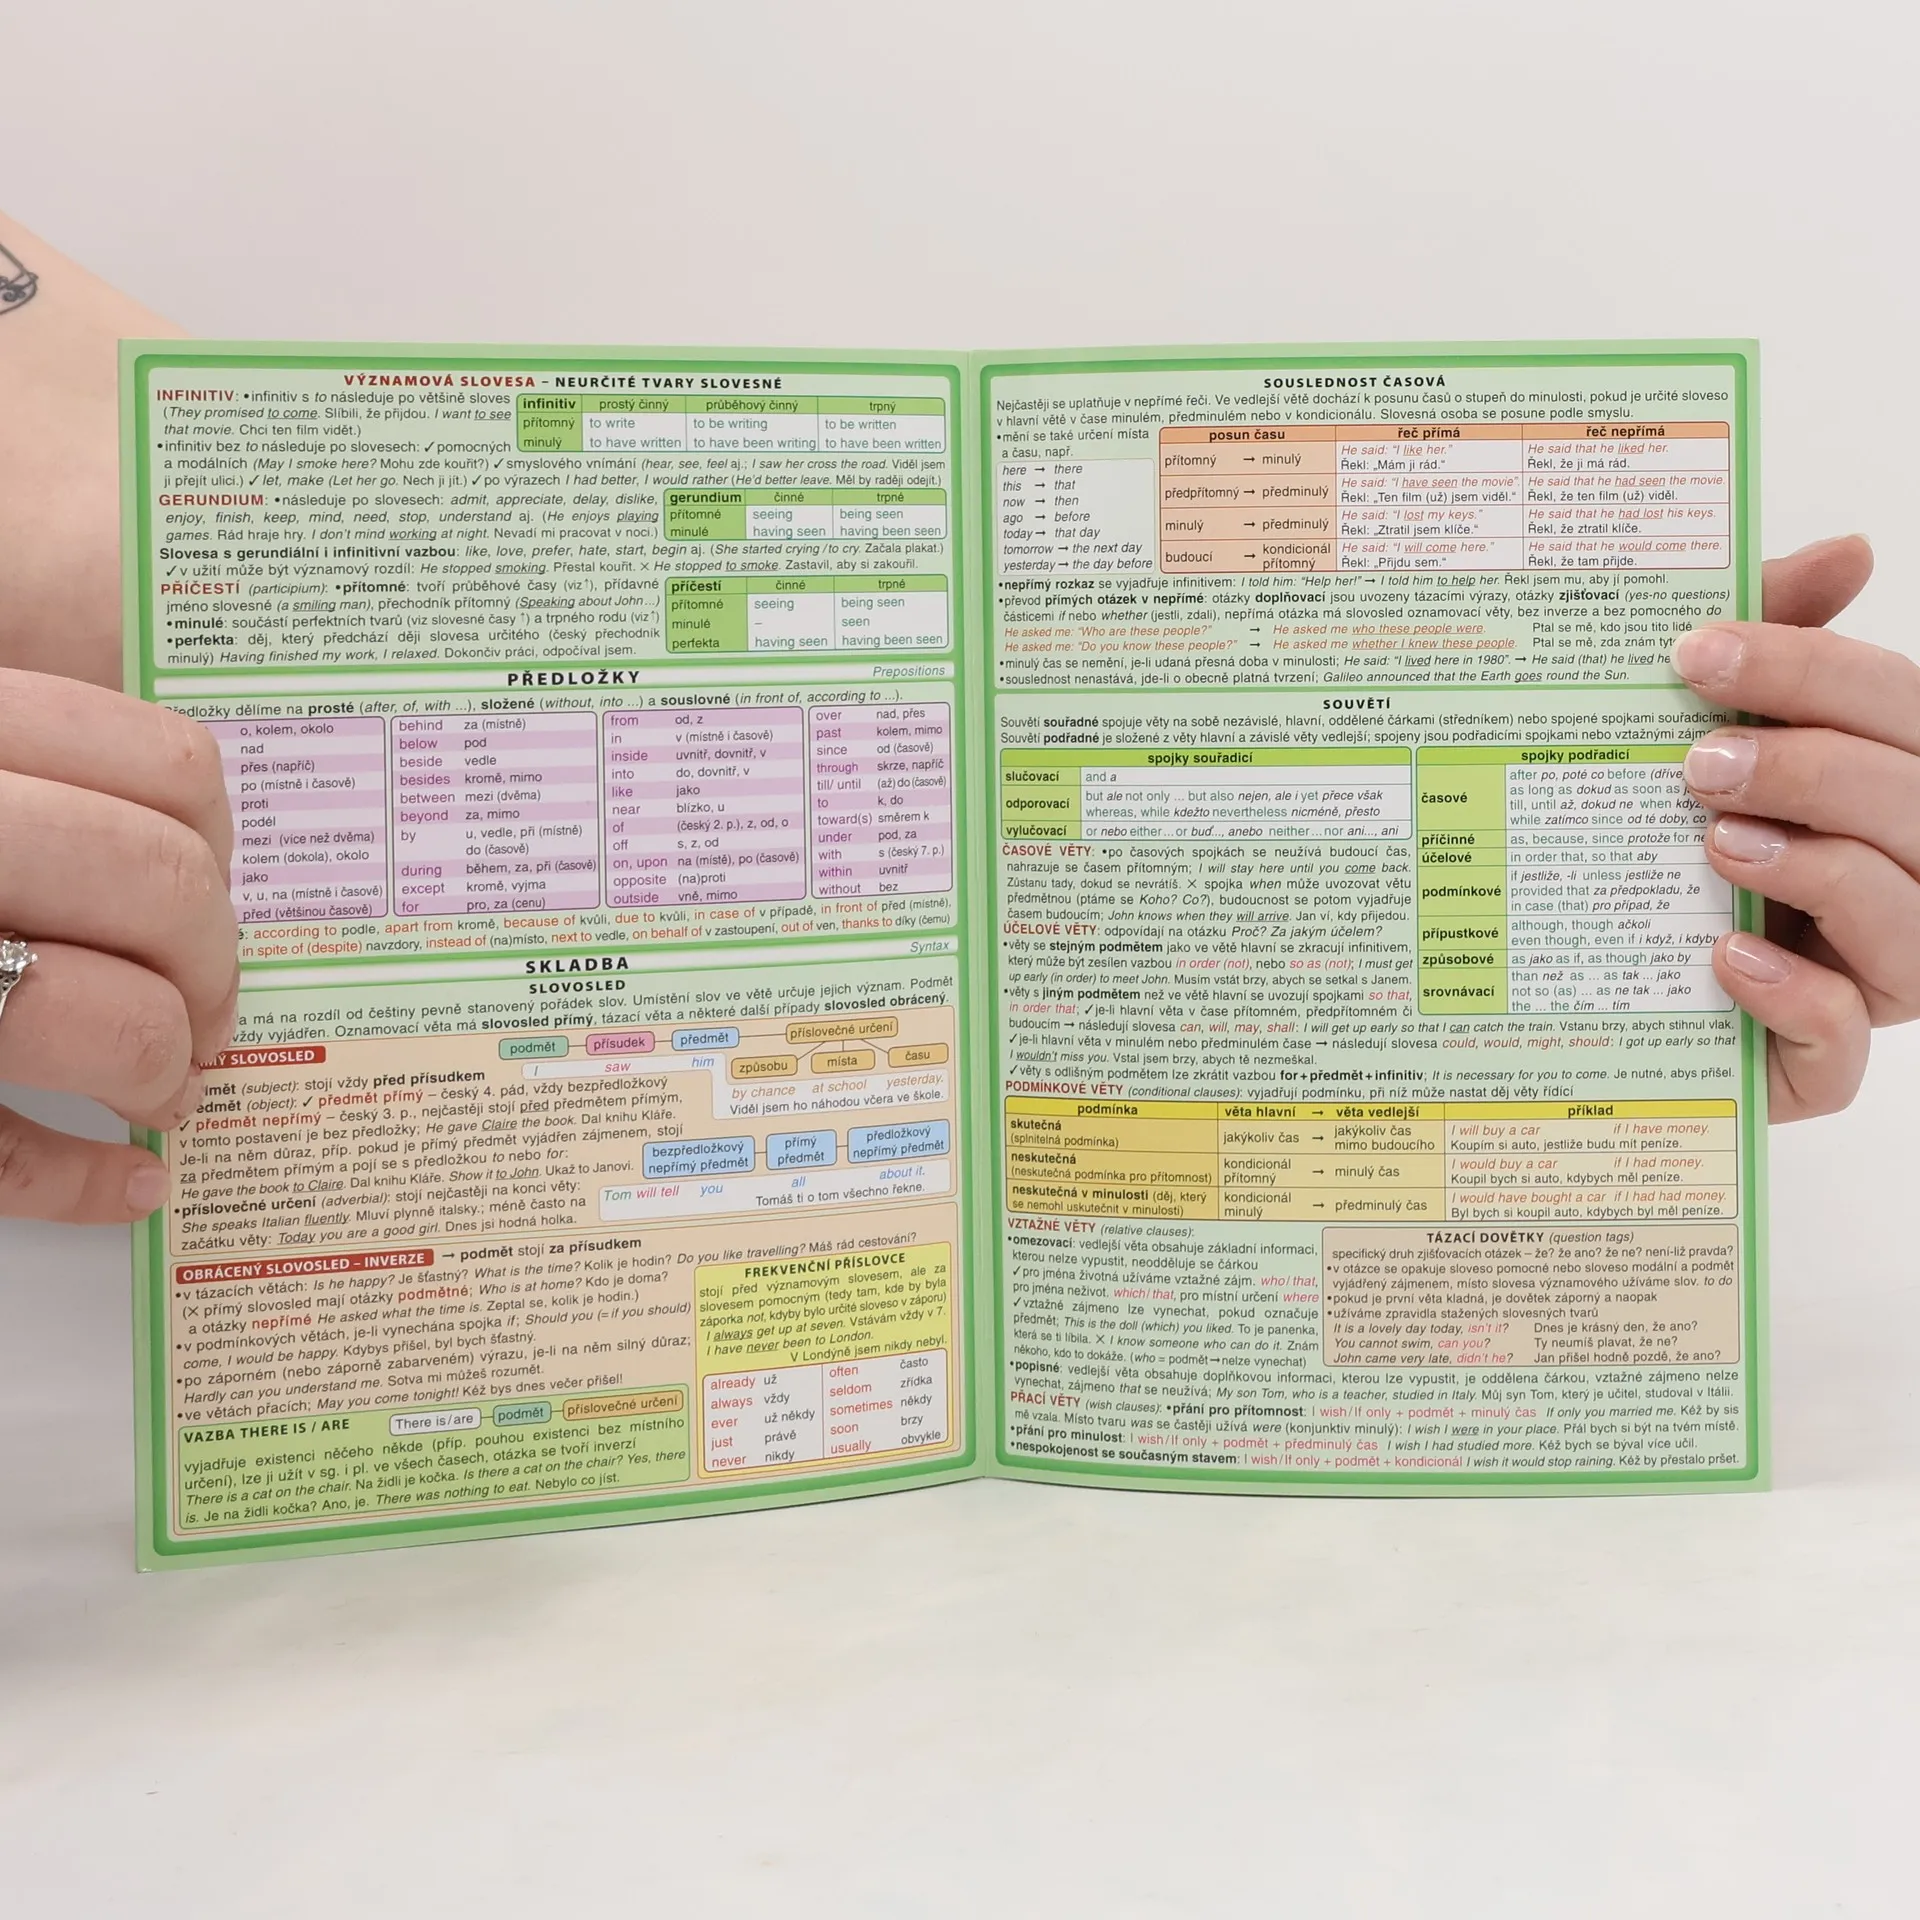 VÝZNAMOVÁ SLOVESA – NEURČITÉ TVARY SLOVESNÉ
INFINITIV: • infinitiv s to následuje po většině sloves
(They promised to come. Slíbili, že přijdou. I want to see
that movie. Chci ten film vidět.)
• infinitiv bez to následuje po slovesech: ✓ pomocných
infinitiv prostý činný průběhový činný trpný
přítomný to write to be writing to be written
minulý to have written to have been writing to have been written
a modálních (May I smoke here? Mohu zde kouřit?) ✓ smyslového vnímání (hear, see, feel aj.; I saw her cross the road. Viděl jsem
ji přejít ulici.) ✓ let, make (Let her go. Nech ji jít.) ✓ po výrazech I had better, I would rather (He'd better leave. Měl by raději odejít.)
GERUNDIUM: • následuje po slovesech: admit, appreciate, delay, dislike,
enjoy, finish, keep, mind, need, stop, understand aj. (He enjoys playing
games. Rád hraje hry. I don't mind working at night. Nevadí mi pracovat v noci.)
gerundium činné trpné
přítomné seeing being seen
minulé having seen having been seen
Slovesa s gerundiální i infinitivní vazbou: like, love, prefer, hate, start, begin aj. (She started crying / to cry. Začala plakat.)
✓ v užití může být významový rozdíl: He stopped smoking. Přestal kouřit. × He stopped to smoke. Zastavil, aby si zakouřil.
PŘÍČESTÍ (participium): • přítomné: tvoří průběhové časy (viz↑), přídavné
jméno slovesné (a smiling man), přechodník přítomný (Speaking about John...)
• minulé: součástí perfektních tvarů (viz slovesné časy ↑) a trpného rodu (viz↑)
• perfekta: děj, který předchází ději slovesa určitého (český přechodník
minulý) Having finished my work, I relaxed. Dokončiv práci, odpočíval jsem.
příčestí činné trpné
přítomné seeing being seen
minulé – seen
perfekta having seen having been seen
PŘEDLOŽKY Prepositions
Předložky dělíme na prosté (after, of, with ...), složené (without, into ...) a souslovné (in front of, according to ...).
o, kolem, okolo
nad
přes (napříč)
po (místně i časově)
proti
podél
mezi (více než dvěma)
kolem (dokola), okolo
jako
v, u, na (místně i časově)
před (většinou časově)
behind za (místně)
below pod
beside vedle
besides kromě, mimo
between mezi (dvěma)
beyond za, mimo
by u, vedle, při (místně)
do (časově)
during během, za, při (časově)
except kromě, vyjma
for pro, za (cenu)
from od, z
in v (místně i časově)
inside uvnitř, dovnitř, v
into do, dovnitř, v
like jako
near blízko, u
of (český 2. p.), z, od, o
off s, z, od
on, upon na (místě), po (časově)
opposite (na)proti
outside vně, mimo
over nad, přes
past kolem, mimo
since od (časově)
through skrze, napříč
till/ until (až) do (časově)
to k, do
toward(s) směrem k
under pod, za
with s (český 7. p.)
within uvnitř
without bez
according to podle, apart from kromě, because of kvůli, due to kvůli, in case of v případě, in front of před (místně),
in spite of (despite) navzdory, instead of (na)místo, next to vedle, on behalf of v zastoupení, out of ven, thanks to díky (čemu)
SKLADBA Syntax
SLOVOSLED
a má na rozdíl od češtiny pevně stanovený pořádek slov. Umístění slov ve větě určuje jejich význam. Podmět
vždy vyjádřen. Oznamovací věta má slovosled přímý, tázací věta a některé další případy slovosled obrácený.
SLOVOSLED
podmět přísudek předmět příslovečné určení
způsobu místa času
I saw him by chance at school yesterday.
Viděl jsem ho náhodou včera ve škole.
(subject): stojí vždy před přísudkem
(object): ✓ předmět přímý – český 4. pád, vždy bezpředložkový
✓ předmět nepřímý – český 3. p., nejčastěji stojí před předmětem přímým,
v tomto postavení je bez předložky; He gave Claire the book. Dal knihu Kláře.
Je-li na něm důraz, příp. pokud je přímý předmět vyjádřen zájmenem, stojí
za předmětem přímým a pojí se s předložkou to nebo for:
He gave the book to Claire. Dal knihu Kláře. Show it to John. Ukaž to Janovi.
• příslovečné určení (adverbial): stojí nejčastěji na konci věty:
She speaks Italian fluently. Mluví plynně italsky.; méně často na
začátku věty: Today you are a good girl. Dnes jsi hodná holka.
bezpředložkový nepřímý předmět přímý předmět předložkový nepřímý předmět
Tom will tell you all about it.
Tomáš ti o tom všechno řekne.
OBRÁCENÝ SLOVOSLED – INVERZE → podmět stojí za přísudkem
• v tázacích větách: Is he happy? Je šťastný? What is the time? Kolik je hodin? Do you like travelling? Máš rád cestování?
(× přímý slovosled mají otázky podmětné; Who is at home? Kdo je doma?
a otázky nepřímé He asked what the time is. Zeptal se, kolik je hodin.)
• v podmínkových větách, je-li vynechána spojka if; Should you (= if you should)
come, I would be happy. Kdybys přišel, byl bych šťastný.
• po záporném (nebo záporně zabarveném) výrazu, je-li na něm silný důraz;
Hardly can you understand me. Sotva mi můžeš rozumět.
• ve větách přacích; May you come tonight! Kéž bys dnes večer přišel!
FREKVENČNÍ PŘÍSLOVCE
stojí před významovým slovesem, ale za
slovesem pomocným (tedy tam, kde by byla
záporka not, kdyby bylo určité sloveso v záporu)
I always get up at seven. Vstávám vždy v 7.
I have never been to London.
V Londýně jsem nikdy nebyl.
already už often často
always vždy seldom zřídka
ever už někdy sometimes někdy
just právě soon brzy
never nikdy usually obvykle
VAZBA THERE IS / ARE There is/are podmět příslovečné určení
vyjadřuje existenci něčeho někde (příp. pouhou existenci bez místního
určení), lze ji užít v sg. i pl. ve všech časech, otázka se tvoří inverzí
There is a cat on the chair. Na židli je kočka. Is there a cat on the chair? Yes, there
is. Je na židli kočka? Ano, je. There was nothing to eat. Nebylo co jíst.
SOUSLEDNOST ČASOVÁ
Nejčastěji se uplatňuje v nepřímé řeči. Ve vedlejší větě dochází k posunu časů o stupeň do minulosti, pokud je určité sloveso
v hlavní větě v čase minulém, předminulém nebo v kondicionálu. Slovesná osoba se posune podle smyslu.
• mění se také určení místa
a času, např.
here → there
this → that
now → then
ago → before
today → that day
tomorrow → the next day
yesterday → the day before
posun času řeč přímá řeč nepřímá
přítomný → minulý He said: “I like her.” He said that he liked her.
Řekl: „Mám ji rád.“ Řekl, že ji má rád.
předpřítomný → předminulý He said: “I have seen the movie”. He said that he had seen the movie.
Řekl: „Ten film (už) jsem viděl.“ Řekl, že ten film (už) viděl.
minulý → předminulý He said: “I lost my keys.” He said that he had lost his keys.
Řekl: „Ztratil jsem klíče.“ Řekl, že ztratil klíče.
budoucí → kondicionál přítomný He said: “I will come here.” He said that he would come there.
Řekl: „Přijdu sem.“ Řekl, že tam přijde.
• nepřímý rozkaz se vyjadřuje infinitivem: I told him: “Help her!” → I told him to help her. Řekl jsem mu, aby jí pomohl.
• převod přímých otázek v nepřímé: otázky doplňovací jsou uvozeny tázacími výrazy, otázky zjišťovací (yes-no questions)
částicemi if nebo whether (jestli, zdali), nepřímá otázka má slovosled oznamovací věty, bez inverze a bez pomocného do
He asked me: “Who are these people?” → He asked me who these people were. Ptal se mě, kdo jsou tito lidé
He asked me: “Do you know these people?” → He asked me whether I knew these people. Ptal se mě, zda znám
• minulý čas se nemění, je-li udaná přesná doba v minulosti; He said: “I lived here in 1980”. → He said (that) he lived
• souslednost nenastává, jde-li o obecně platná tvrzení; Galileo announced that the Earth goes round the Sun.
SOUVĚTÍ
Souvětí souřadné spojuje věty na sobě nezávislé, hlavní, oddělené čárkami (středníkem) nebo spojené spojkami souřadicími.
Souvětí podřadné je složené z věty hlavní a závislé věty vedlejší; spojeny jsou podřadicími spojkami nebo vztažnými
spojky souřadicí
slučovací and a
odporovací but ale not only ... but also nejen, ale i yet přece však
whereas, while kdežto nevertheless nicméně, přesto
vylučovací or nebo either ... or buď..., anebo neither ... nor ani..., ani
spojky podřadicí
časové after po, poté co before (dříve
as long as dokud as soon as
till, until až, dokud ne when když
while zatímco since od té doby, co
příčinné as, because, since protože for
účelové in order that, so that aby
podmínkové if jestliže, -li unless jestliže ne
provided that za předpokladu, že
in case (that) pro případ, že
přípustkové although, though ačkoli
even though, even if i když, i kdyby
způsobové as jako as if, as though jako by
srovnávací than než as ... as tak ... jako
not so (as) ... as ne tak ... jako
the ... the čím ... tím
ČASOVÉ VĚTY: • po časových spojkách se neužívá budoucí čas,
nahrazuje se časem přítomným; I will stay here until you come back.
Zůstanu tady, dokud se nevrátíš. × spojka when může uvozovat větu
předmětnou (ptáme se Koho? Co?), budoucnost se potom vyjadřuje
časem budoucím; John knows when they will arrive. Jan ví, kdy přijedou.
ÚČELOVÉ VĚTY: odpovídají na otázku Proč? Za jakým účelem?
• věty se stejným podmětem jako ve větě hlavní se zkracují infinitivem,
který může být zesílen vazbou in order (not), nebo so as (not); I must get
up early (in order) to meet John. Musím vstát brzy, abych se setkal s Janem.
• věty s jiným podmětem než ve větě hlavní se uvozují spojkami so that,
in order that; ✓ je-li hlavní věta v čase přítomném, předpřítomném či
budoucím → následují slovesa can, will, may, shall: I will get up early so that I can catch the train. Vstanu brzy, abych stihnul vlak.
✓ je-li hlavní věta v minulém nebo předminulém čase → následují slovesa could, would, might, should: I got up early so that
I wouldn't miss you. Vstal jsem brzy, abych tě nezmeškal.
✓ věty s odlišným podmětem lze zkrátit vazbou for + předmět + infinitiv; It is necessary for you to come. Je nutné, abys přišel.
PODMÍNKOVÉ VĚTY (conditional clauses): vyjadřují podmínku, při níž může nastat děj věty řídící
podmínka věta hlavní → věta vedlejší příklad
skutečná (splnitelná podmínka) jakýkoliv čas → jakýkoliv čas mimo budoucího I will buy a car if I have money.
Koupím si auto, jestliže budu mít peníze.
neskutečná (neskutečná podmínka pro přítomnost) kondicionál přítomný → minulý čas I would buy a car if I had money.
Koupil bych si auto, kdybych měl peníze.
neskutečná v minulosti (děj, který se nemohl uskutečnit v minulosti) kondicionál minulý → předminulý čas I would have bought a car if I had had money.
Byl bych si koupil auto, kdybych byl měl peníze.
VZTAŽNÉ VĚTY (relative clauses):
• omezovací: vedlejší věta obsahuje základní informaci,
kterou nelze vypustit, neodděluje se čárkou
✓ pro jména životná užíváme vztažné zájm. who/ that,
pro jména neživot. which/ that, pro místní určení where
✓ vztažné zájmeno lze vynechat, pokud označuje
předmět; This is the doll (which) you liked. To je panenka,
která se ti líbila. × I know someone who can do it. Znám
někoho, kdo to dokáže. (who = podmět → nelze vynechat)
• popisné: vedlejší věta obsahuje doplňkovou informaci, kterou lze vypustit, je oddělena čárkou, vztažné zájmeno nelze
vynechat, zájmeno that se neužívá; My son Tom, who is a teacher, studied in Italy. Můj syn Tom, který je učitel, studoval v Itálii.
TÁZACÍ DOVĚTKY (question tags)
specifický druh zjišťovacích otázek – že? že ano? že ne? není-liž pravda?
• v otázce se opakuje sloveso pomocné nebo sloveso modální a podmět
vyjádřený zájmenem, místo slovesa významového užíváme slov. to do
• pokud je první věta kladná, je dovětek záporný a naopak
• užíváme zpravidla stažených slovesných tvarů
It is a lovely day today, isn't it? Dnes je krásný den, že ano?
You cannot swim, can you? Ty neumíš plavat, že ne?
John came very late, didn't he? Jan přišel hodně pozdě, že ano?
PŘACÍ VĚTY (wish clauses): • přání pro přítomnost: I wish/If only + podmět + minulý čas If only you married me. Kéž by sis
mě vzala. Místo tvaru was se častěji užívá were (konjunktiv minulý): I wish I were in your place. Přál bych si být na tvém místě.
• přání pro minulost: I wish/If only + podmět + předminulý čas I wish I had studied more. Kéž bych se býval více učil.
• nespokojenost se současným stavem: I wish/If only + podmět + kondicionál I wish it would stop raining. Kéž by přestalo pršet.